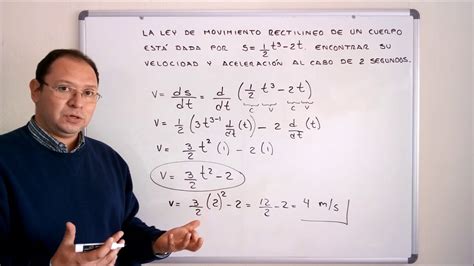 LA LEY DE MOVIMIENTO RECTILINEO DE UN CUERPO
ESTÁ DADA POR S=1/2t³-2t. ENCONTRAR SU
VELOCIDAD Y ACELERACIÓN AL CABO DE 2 SEGUNDOS.
V = ds/dt = d/dt (1/2 t³-2t)
C V C V
V = 1/2 (3t³⁻¹ d/dt(t)) - 2 d/dt (t)
V = 3/2 t² (1) - 2(1)
V = 3/2 t² - 2
V = 3/2 (2)² - 2 = 12/2 - 2 = 4 m/s